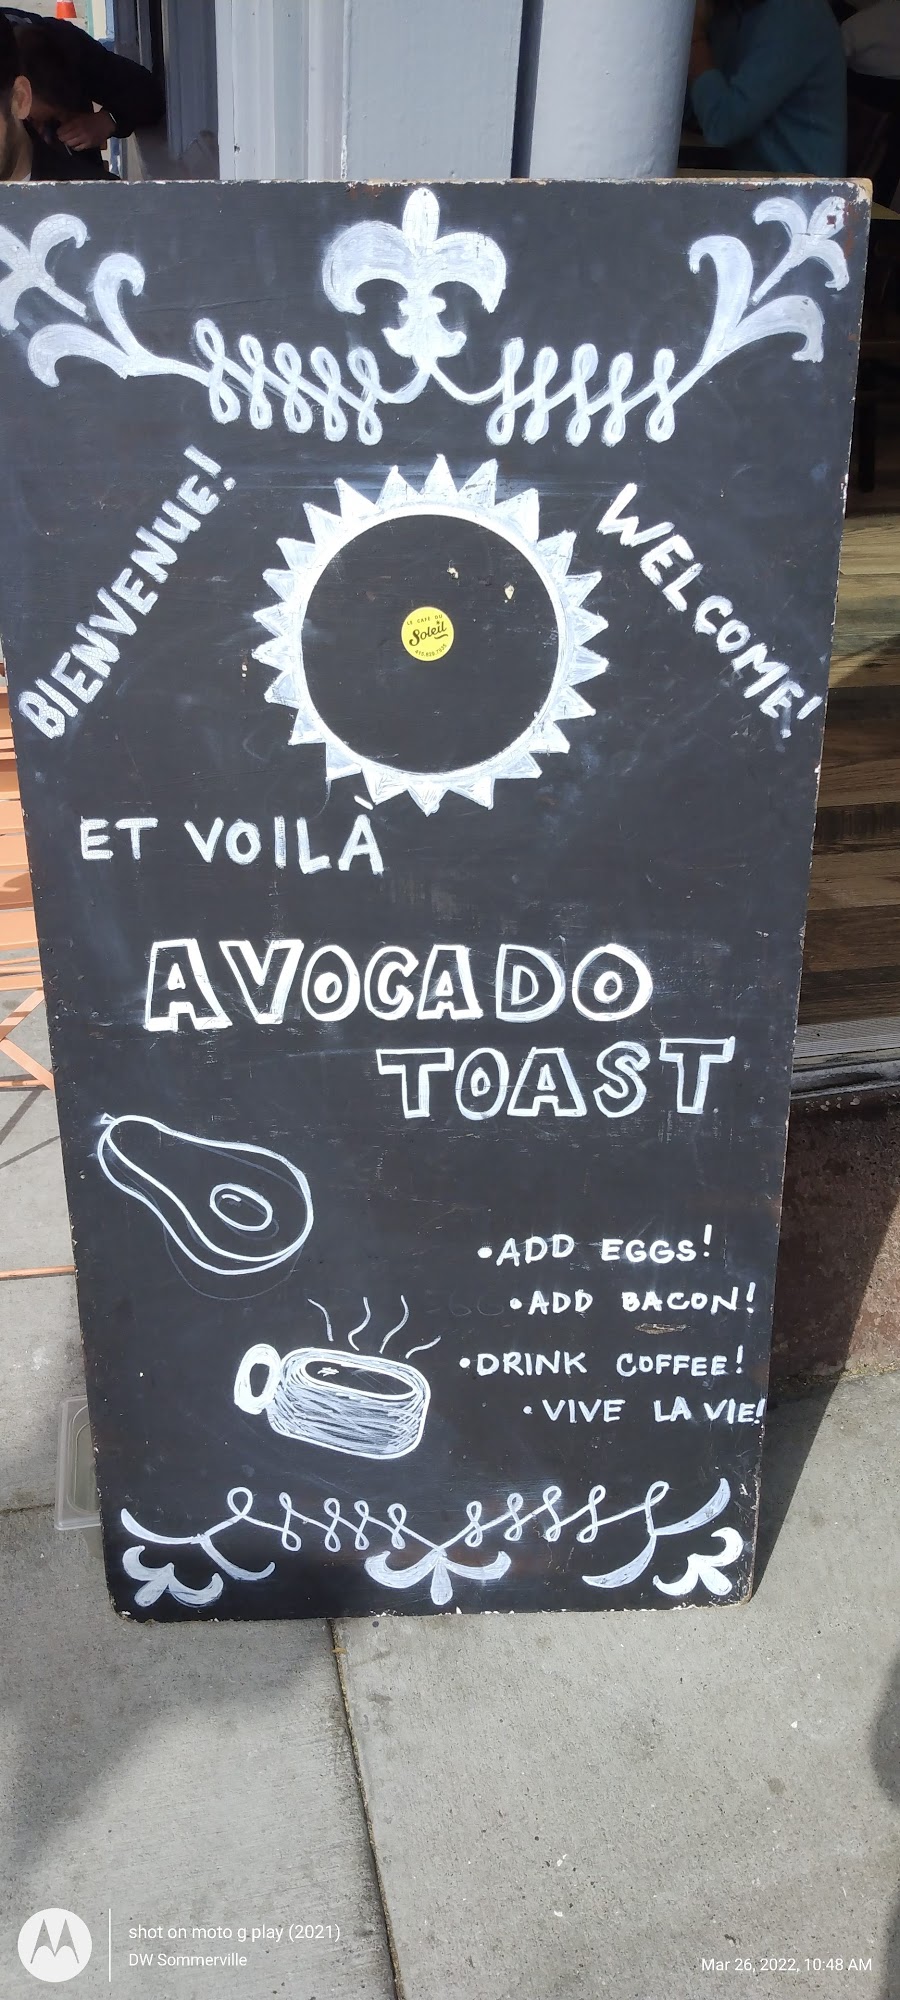 BIENVENUE!
WELCOME!
LE CAFÉ DU
Soleil
ET VOILÀ
AVOCADO
TOAST
•ADD EGGS!
•ADD BACON!
•DRINK COFFEE!
•VIVE LA VIE!
shot on moto g play (2021)
DW Sommerville
Mar 26, 2022, 10:48 AM